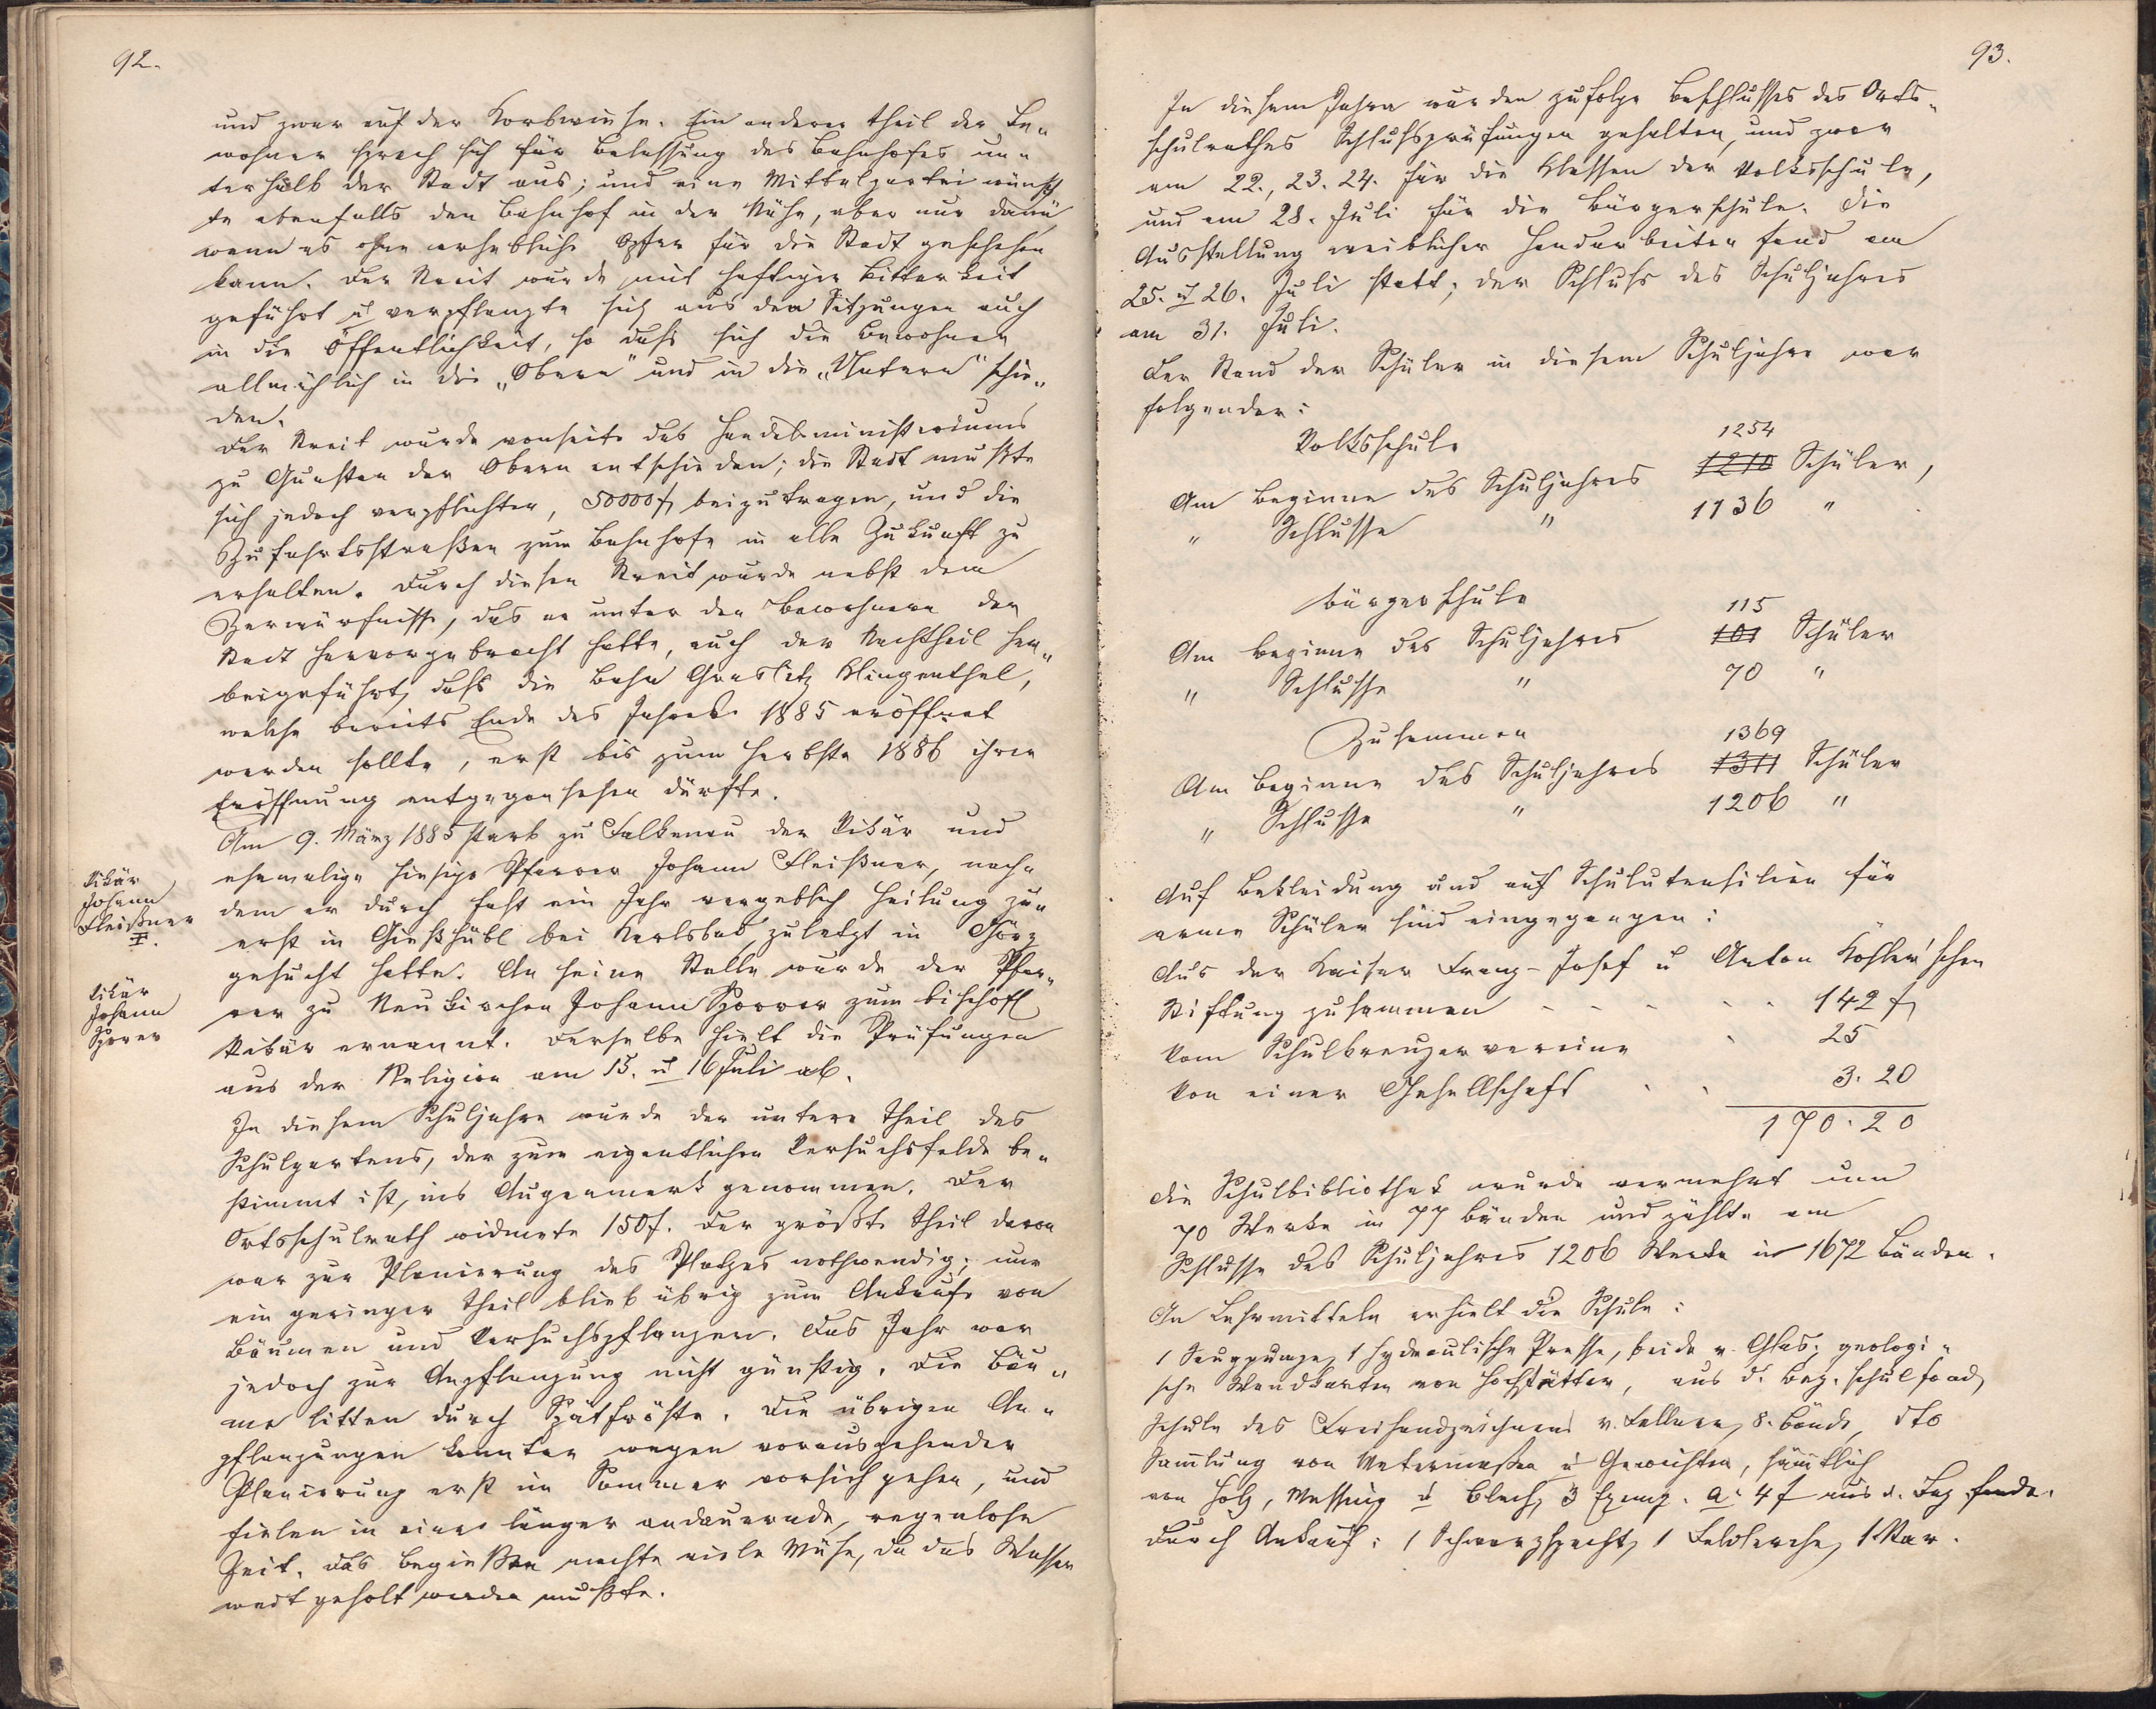 92.
und zwar auf der Korbwiese. Ein anderer Theil der Be„
wohner sprach sich für Belassung des Bahnhofes un„
terhalb der Stadt aus; und eine Mittelpartei wünsch
te ebenfalls den Bahnhof in der Nähe, aber nur dann
wenn es ohne erhebliche Opfer für die Stadt geschehen
kann. Der Streit wurde mit heftiger Bitterkeit
geführt u verpflanzte sich aus den Sitzungen auch
in die Öffentlichkeit, so daß sich die Bewohner
allmählich in die „Obern“ und in die „Untern“ schie„
den.
Der Streit wurde vonseite des Handelsministeriums
zu Gunsten der Obern entschieden; die Stadt mußte
sich jedoch verpflichten, 50000 f beizutragen, und die
Zufahrtsstraßen zum Bahnhofe in alle Zukunft zu
erhalten. Durch diesen Streit wurde nebst dem
Zerwürfnisse, das er unter den Bewohnern der
Stadt hervorgebracht hatte, auch der Nachtheil her„
beigeführt, daß die Bahn Graslitz Klingenthal,
welche bereits Ende des Jahres 1885 eröffnet
werden sollte, erst bis zum Herbste 1886 ihrer
Eröffnung entgegensehen dürfte.
Am 9. März 1885 starb zu Falkenau der Vikär und
ehemalige hiesige Pfarrer Johann Fleißner, nach„
dem er durch fast ein Jahr vergeblich Heilung zu„
erst in Gießhübl bei Karlsbad, zuletzt in Görz
gesucht hatte. An seine Stelle wurde der Pfar„
rer zu Neukirchen Johann Sporrer zum bischöfl
Vikär ernannt. Derselbe hielt die Prüfungen
aus der Religion am 15. u 16 Juli ab.
Vikär
Johann
Fleißner
‡.
Vikär
Johann
Sporer
In diesem Schuljahre wurde der untere Theil des
Schulgartens, der zum eigentlichen Versuchsfelde be„
stimmt ist, ins Augenmerk genommen. Der
Ortsschulrath widmete 150 f. Der größte Theil davon
war zur Planierung des Platzes nothwendig; nur
ein geringer Theil blieb übrig zum Ankaufe von
Bäumen und Versuchspflanzen. Das Jahr war
jedoch zur Anpflanzung nicht günstig. Die Bäu„
me litten durch Spätfröste. Die übrigen An„
pflanzungen konnten wegen vorausgehender
Planierung erst im Sommer vorsichgehen, und
fielen in eine länger andauernde, regenlose
Zeit. Das Begießen machte viele Mühe, da das Wasser
weit geholt werden mußte.
93.
In diesem Jahre wurden zufolge Beschlusses des Orts„
schulrathes Schlußprüfungen gehalten, und zwar
am 22., 23. 24. für die Klassen der Volksschule,
und am 28. Juli für die Bürgerschule. Die
Ausstellung weiblicher Handarbeiten fand am
25. u 26. Juli statt; der Schluß des Schuljahres
am 31. Juli.
Der Stand der Schüler in diesem Schuljahre war
folgender:
Volksschule
1254
Am Beginne des Schuljahres 1210 Schüler,
„ Schlusse „ 1136 „
Bürgerschule
115
Am Beginne des Schuljahres 101 Schüler
„ Schlusse „ 70 „
Zusammen
1369
Am Beginne des Schuljahres 1311 Schüler
„ Schlusse „ 1206 „
Auf Bekleidung und auf Schulutensilien für
arme Schüler sind eingegangen:
Aus der Kaiser Franz-Josef u Anton Köhler'schen
Stiftung zusammen - - - - - 142 f
Vom Schulkreuzervereine . 25
Von einer Gesellschaft . . 3. 20
170. 20
Die Schulbibliothek wurde vermehrt um
70 Werke in 77 Bänden und zählte am
Schlusse des Schuljahres 1206 Werke in 1672 Bänden.
An Lehrmitteln erhielt die Schule:
1 Saugpumpe, 1 hydraulische Presse, beide v. Glas; geologi„
sche Wandkarten von Hochstätter, aus d. Bez. schulfond,
Schule des Freihandzeichnens v. Fellner, 8. Bände, dto
Samlung von Metermaßen u Gewichten, sämtlich
von Holz, Messing u Blech, 3 Exemp. a. 4 f aus d. Bez. fonde.
Durch Ankauf: 1 Schwarzspecht, 1 Feldlerche, 1 Star.